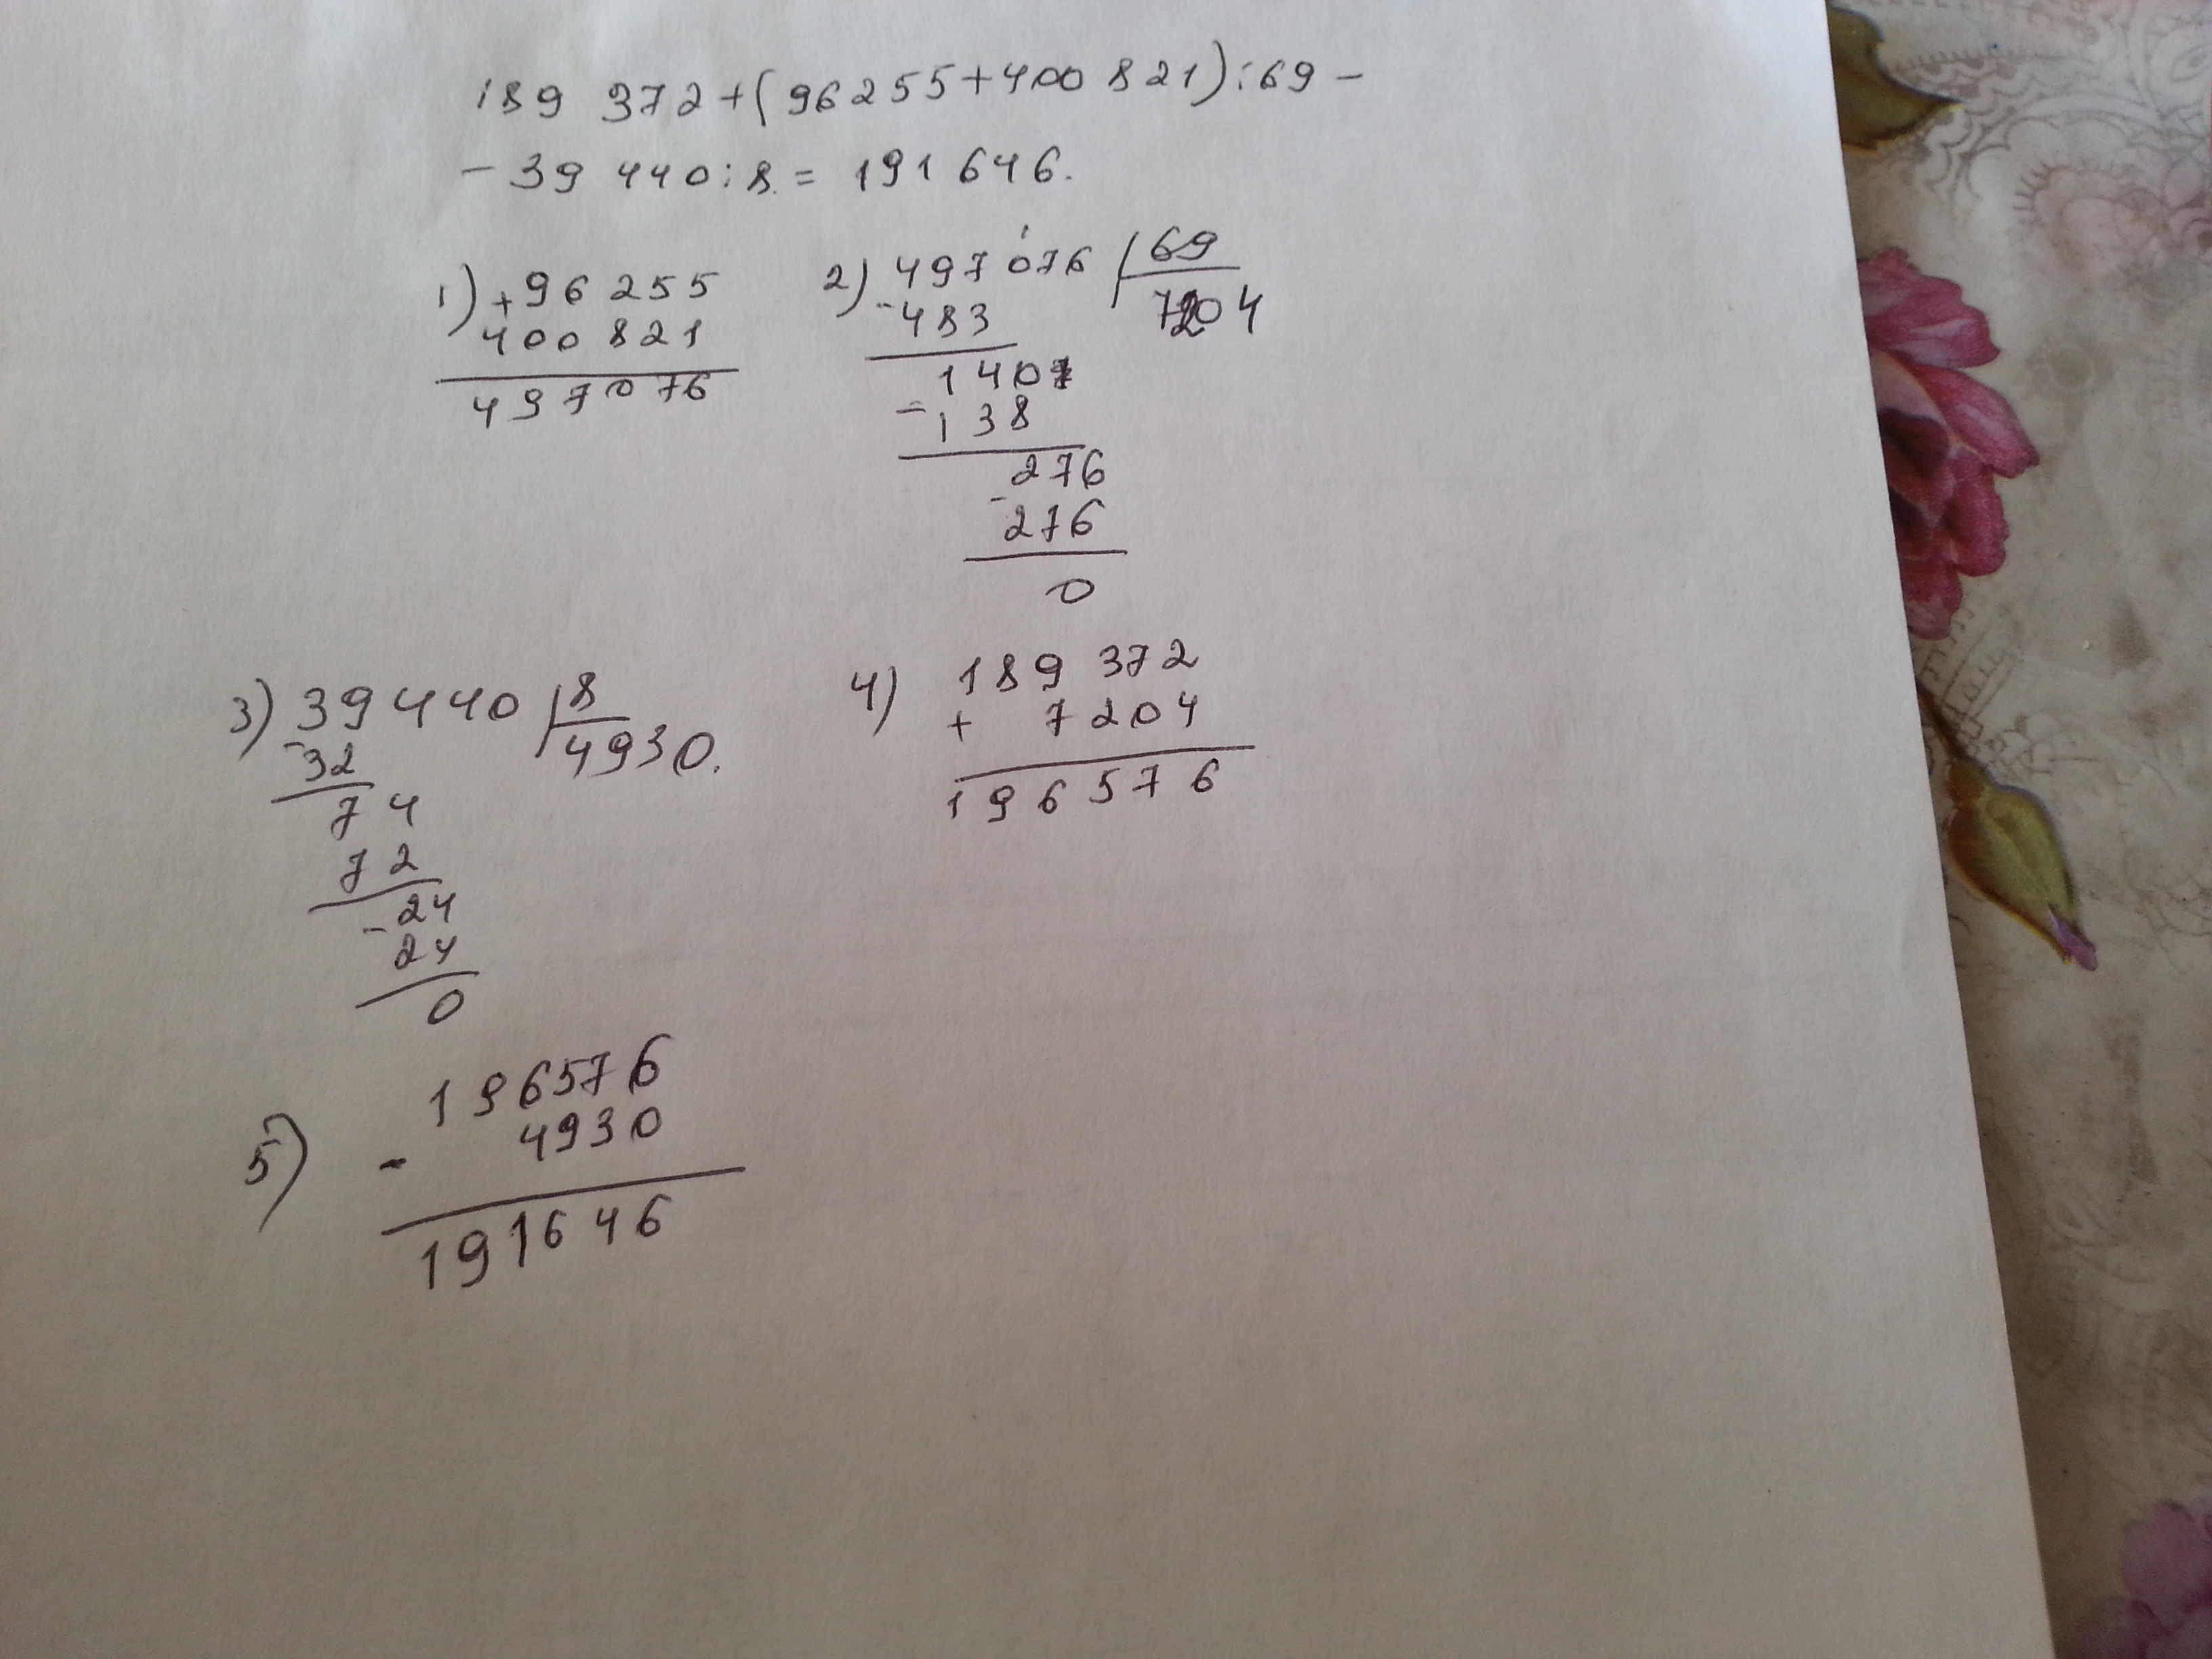 189 372+(96255+400 821):69-
-39 440:8.= 191 646.
1) +96 255
400 821
497 076
2) 497 076 69
-483 7204
140
-138
276
-276
0
3) 39440 8
-32 4930.
74
72
-24
24
0
4) 189 372
+ 7204
196576
5) 196576
- 4930
191646